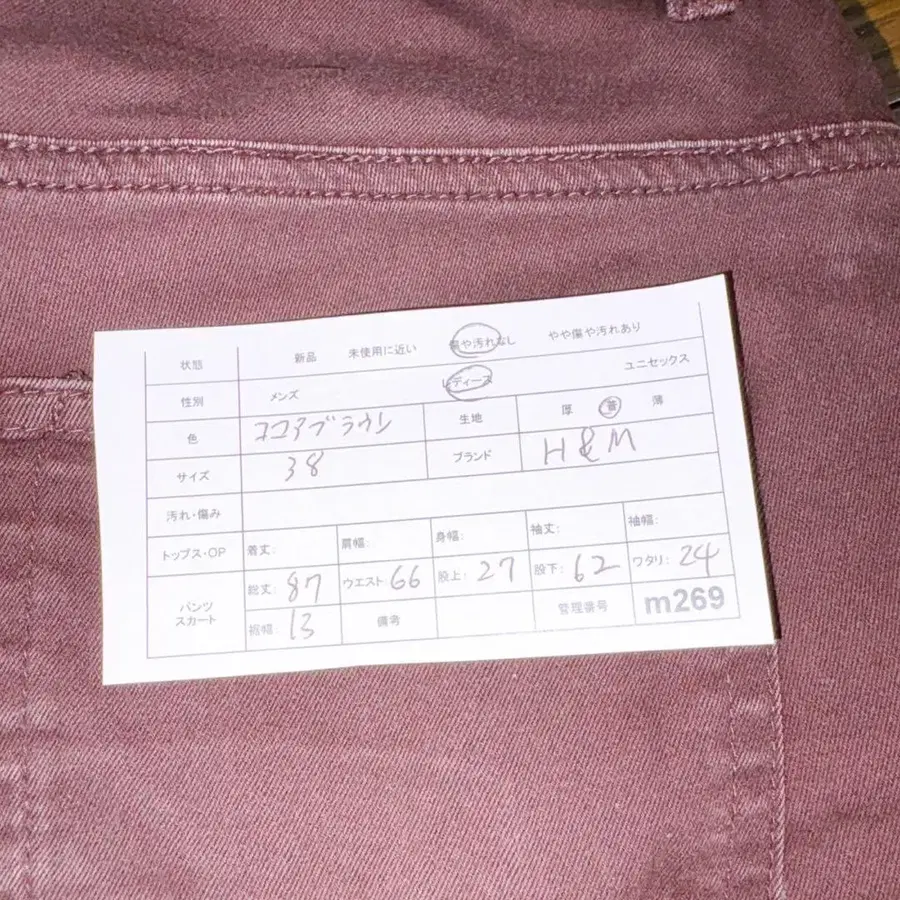 状態 新品 未使用に近い 傷や汚れなし やや傷や汚れあり
性別 メンズ レディース ユニセックス
色 ココアブラウン 生地 厚 普 薄
サイズ 38 ブランド H&M
汚れ・傷み
トップス・OP 着丈: 肩幅: 身幅: 袖丈: 袖幅:
パンツ スカート 総丈: 87 ウエスト: 66 股上: 27 股下: 62 ワタリ: 24
裾幅: 13 備考 管理番号 m269